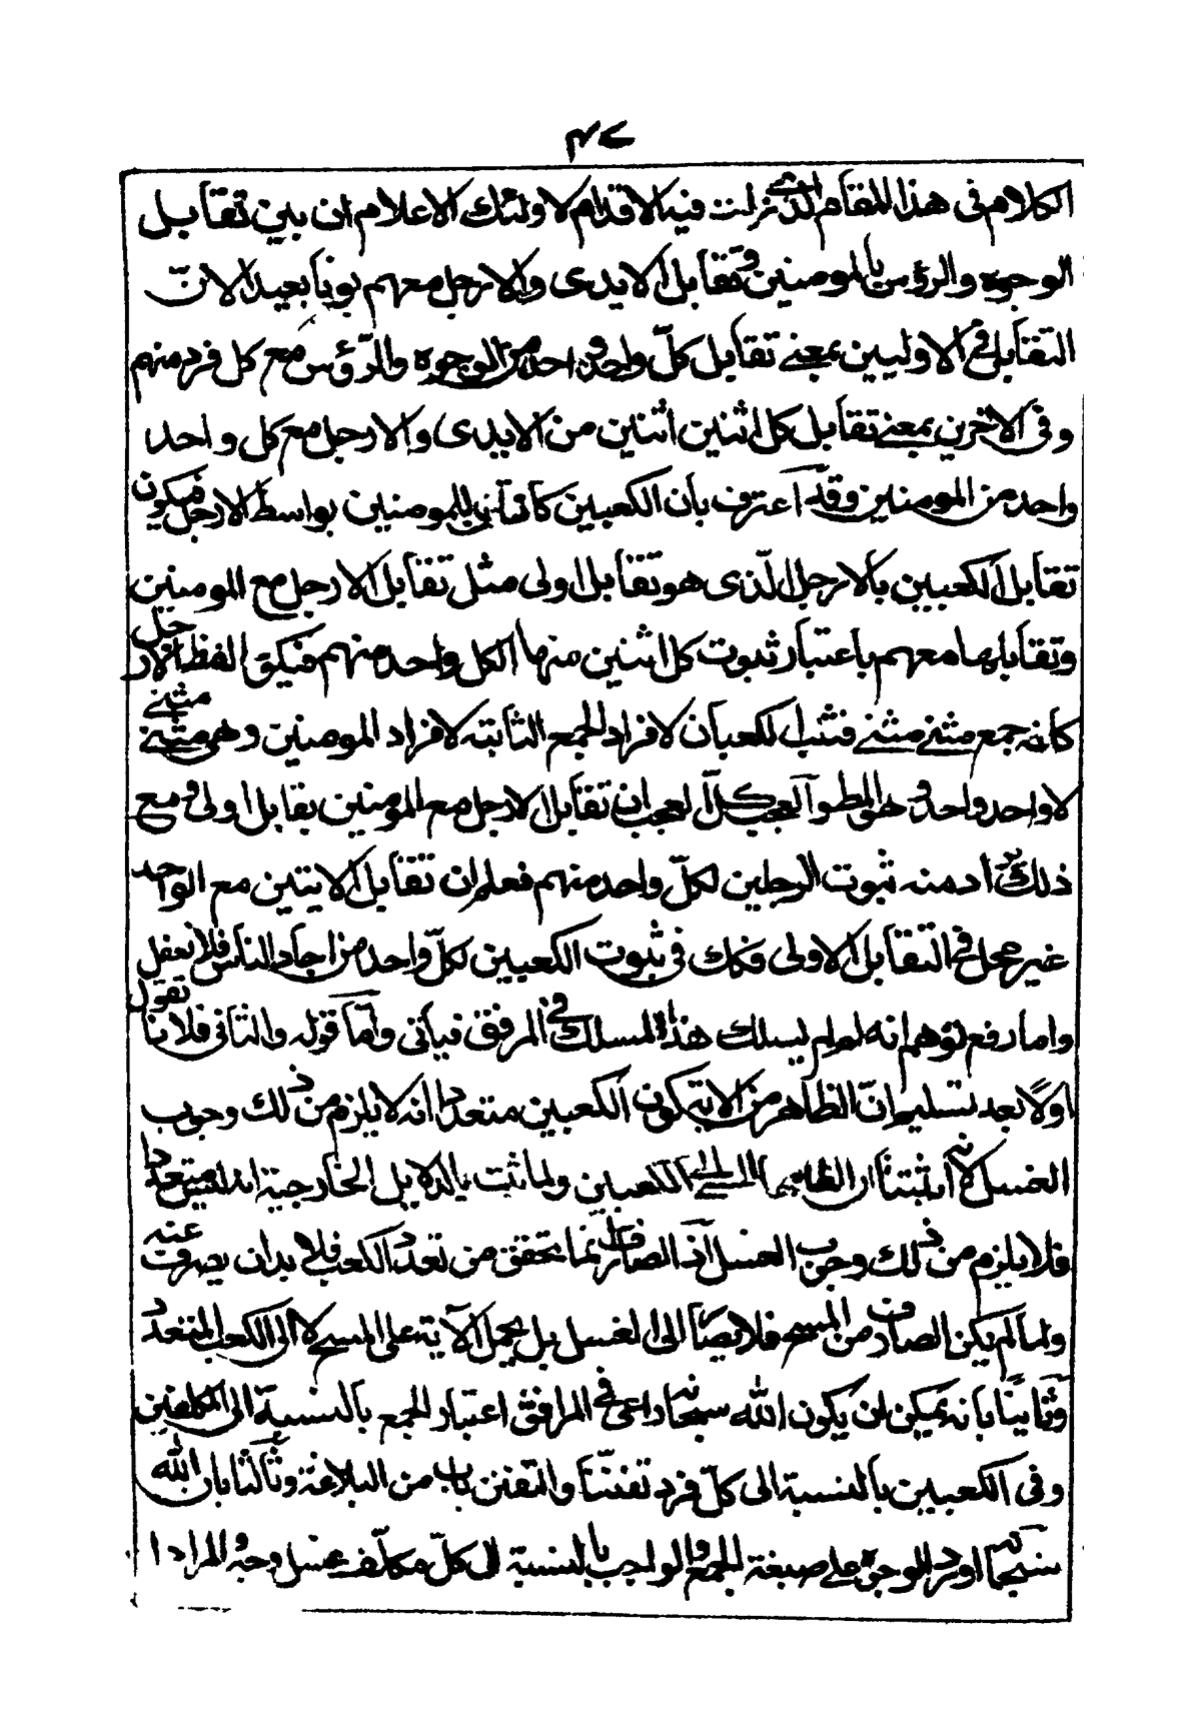 ٤٧
الكلام فى هذا المقام الذى زلت فيه الاقدام لاولئك الاعلام ان بين تقابل
الوجوه والرؤس بالمومنين وتقابل الايدى والارجل معهم بونا بعيدا لان
التقابل فى الاوليين بمعنے تقابل كلّ واحد واحد من الوجوه والرّؤس مع كل فرد منهم
وفى الاخرين بمعنے تقابل كل اثنين اثنين من الايدى والارجل مع كل واحد
واحد من المومنين وقد اعترف بان الكعبين كانتا للمومنين بواسطة الارجل فيكون
تقابل الكعبين بالارجل الّذى هو تقابل اولى مثل تقابل الارجل مع المومنين
وتقابلها معهم باعتبار ثبوت كل اثنين منها لكل واحد منهم فيكون لفظ الارجل
كانه جمع مثنے مثنے فتثبت الكعبان لافراد الجمع الثابتة لافراد المومنين وهى مثنے مثنے
لا واحد واحد وهو المط والعجب كل العجب ان تقابل الارجل مع المومنين تقابل اولى ومع
ذلك اراد منه ثبوت الرجلين لكلّ واحد منهم فعلم ان تقابل الاثنين مع الواحد
غير مخل فى التقابل الاولى فكذلك فى ثبوت الكعبين لكلّ واحد من احاد الناس فلا تغفل
واما رفع توهم انه لم لم يسلك هذا المسلك فى المرفق فياتى وامّا قوله والثانى فلانا نقول
اولًا بعد تسليم انّ الظاهر من الاية كون الكعبين متعددا انه لا يلزم من ذلك وجوب
الغسل لانه اثبتنا ان الظاهر المسح الى الكعبين ولما ثبت بالدلايل الخارجية انه ليس متعددا
فلا يلزم من ذلك وجوب الغسل اذ الصارف انما تحقق من تعدد الكعب فلا بد ان يصرف عنه
ولما لم يكن الصارف من المسح فلا يصار الى الغسل بل يحمل الآية على المسح لا الى الكعب المتعدد
وثانيًا بانه يمكن ان يكون الله سبحانه راعى فى المرافق اعتبار الجمع بالنسبة الى المكلفين
وفى الكعبين بالنسبة الى كلّ فرد تفنّنا والتفنن باب من البلاغة وثالثا بان الله
سبحانه اورد الوجوه على صيغة الجمع والواجب بالنسبة الى كلّ مكلّف غسل وجه والمراد ا